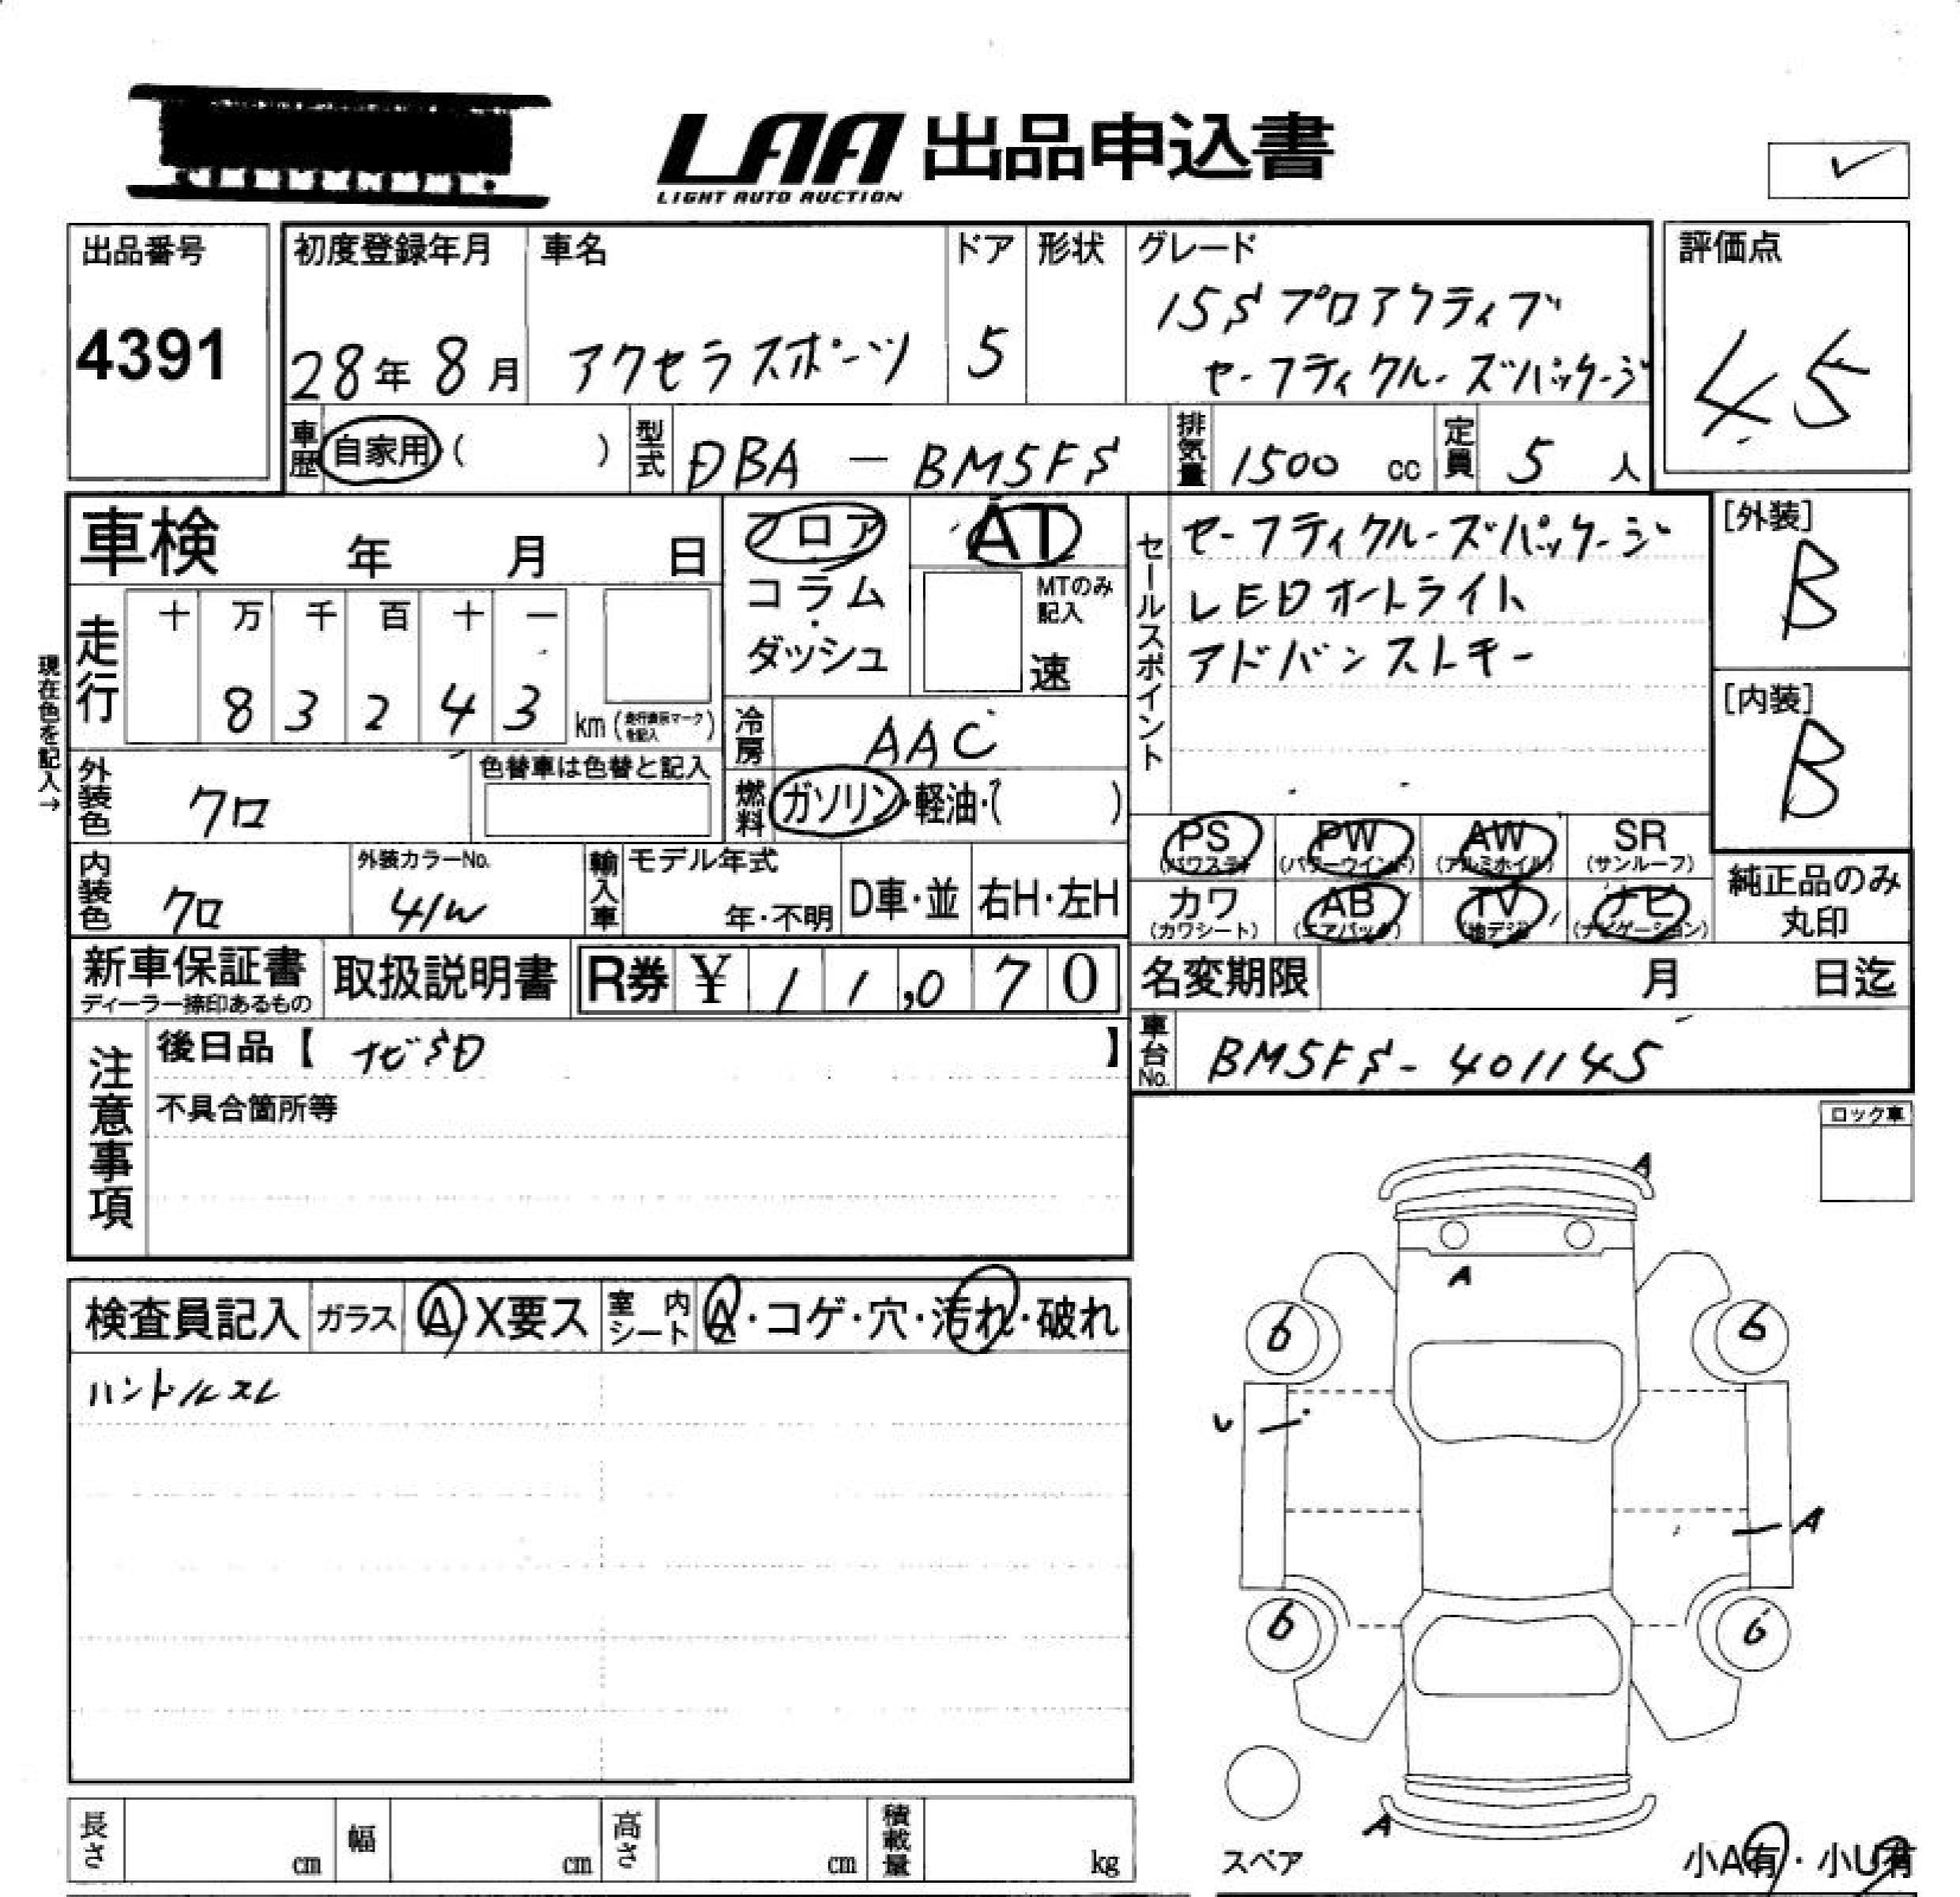 LAA 出品申込書
LIGHT AUTO AUCTION
出品番号
4391
初度登録年月
28年 8月
車名
アクセラスポーツ
ドア
5
形状
グレード
15S プロアクティブ
セーフティクルーズパッケージ
評価点
4.5
車歴
自家用 ( )
型式
DBA - BM5FS
排気量
1500 cc
定員
5 人
車検 年 月 日
フロア
コラム
・
ダッシュ
AT
MTのみ
記入
速
セールスポイント
セーフティクルーズパッケージ
LEDオートライト
アドバンストキー
[外装]
B
[内装]
B
現在色を記入→
走行
十 万 千 百 十 一
8 3 2 4 3 km
冷房
AAC
燃料
ガソリン・軽油・( )
外装色
クロ
色替車は色替と記入
内装色
クロ
外装カラーNo.
41W
輸入車
モデル年式
年・不明
D車・並
右H・左H
PS
(パワステ)
PW
(パワーウインド)
AW
(アルミホイル)
SR
(サンルーフ)
カワ
(カワシート)
AB
(エアバック)
TV
(地デジ)
ナビ
(ナビゲーション)
純正品のみ
丸印
新車保証書
ディーラー捺印あるもの
取扱説明書
R券 ¥ 11,070
名変期限 月 日迄
車台No.
BM5FS-401145
注意事項
後日品【 ナビSD 】
不具合箇所等
ロック車
検査員記入
ガラス
A・X要ス
室内
シート
A・コゲ・穴・汚れ・破れ
ハンドルスレ
A
A
6
6
A
6
6
A
スペア
小A有・小U有
長さ cm
幅 cm
高さ cm
積載量 kg